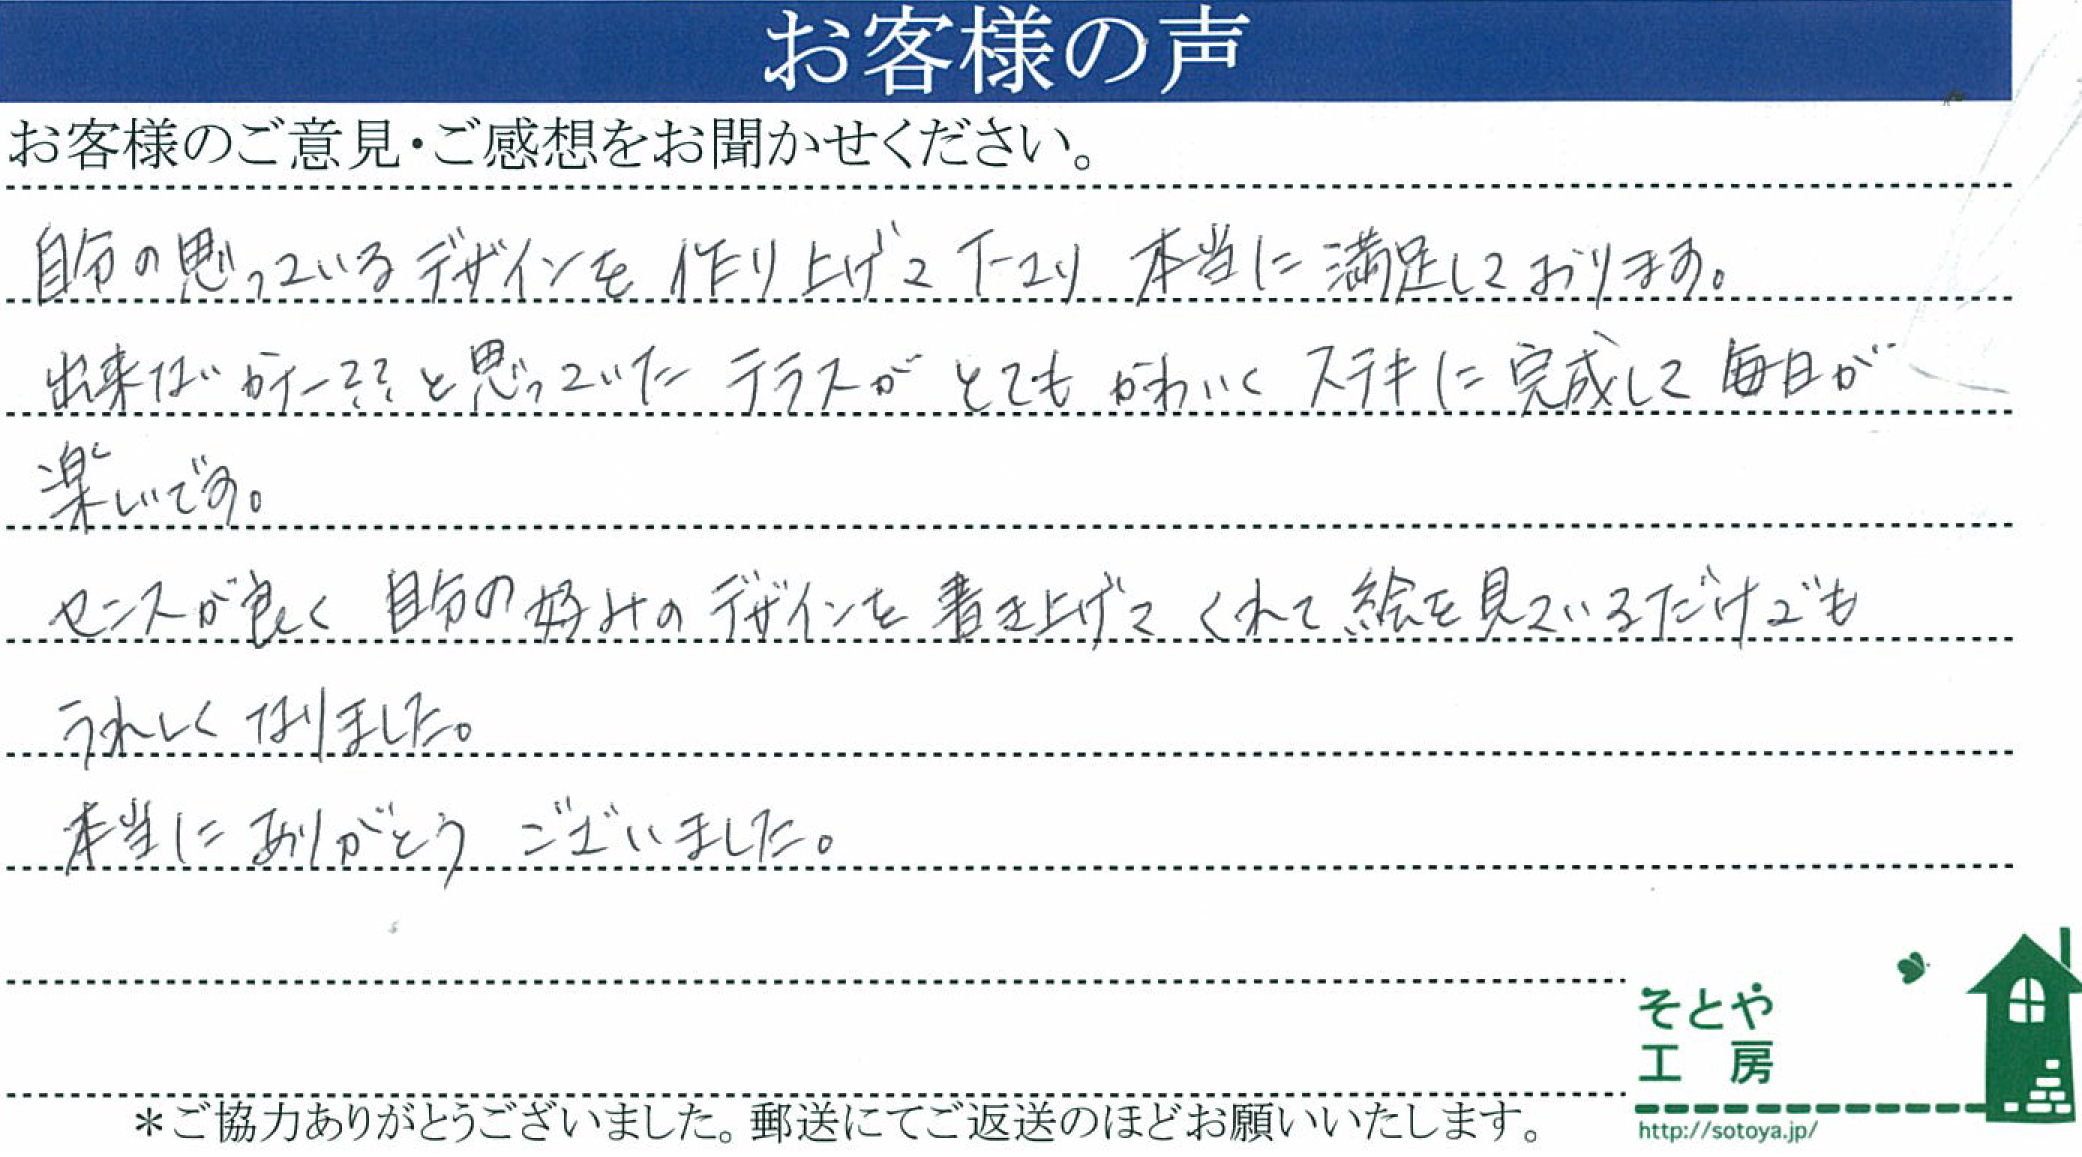 お客様の声
お客様のご意見・ご感想をお聞かせください。
自分の思っているデザインを 作り上げて下さり 本当に 満足しております。
出来ばがナー??と思っていた テラスが とても かわいく ステキに 完成して 毎日が
楽しいです。
センスが良く 自分の好みの デザインを 書き上げて くれて 絵を見ているだけでも
うれしく なりました。
本当に ありがとう ございました。
そとや
工房
http://sotoya.jp/
＊ご協力ありがとうございました。郵送にてご返送のほどお願いいたします。